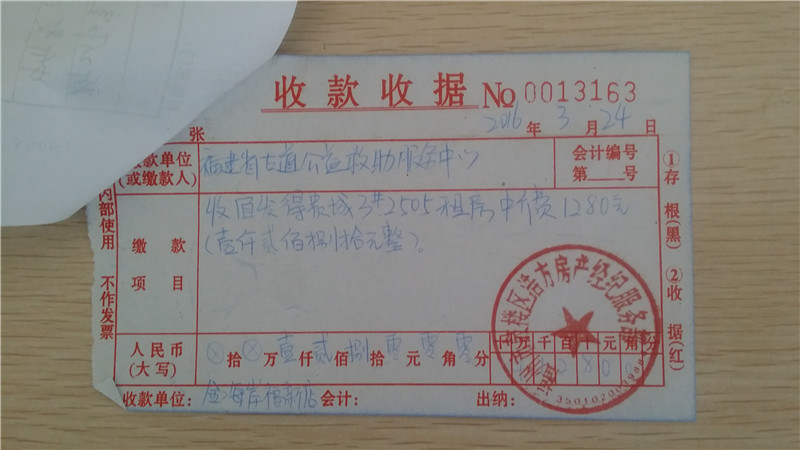 收款收据 No 0013163
张 2016年3月24日
缴款单位 福建省古道公益救助服务中心 会计编号
(或缴款人) 第___号
缴款项目 收 3#2505租房中介费1280元
(壹仟贰佰捌拾元整)。
人民币 ⊗拾⊗万壹仟贰佰捌拾零元零角零分
(大写)
收款单位: 金海岸福新店 会计: 出纳:
内部使用 不作发票
①存根(黑) ②收据(红)
楼区浩方房产经纪服务部